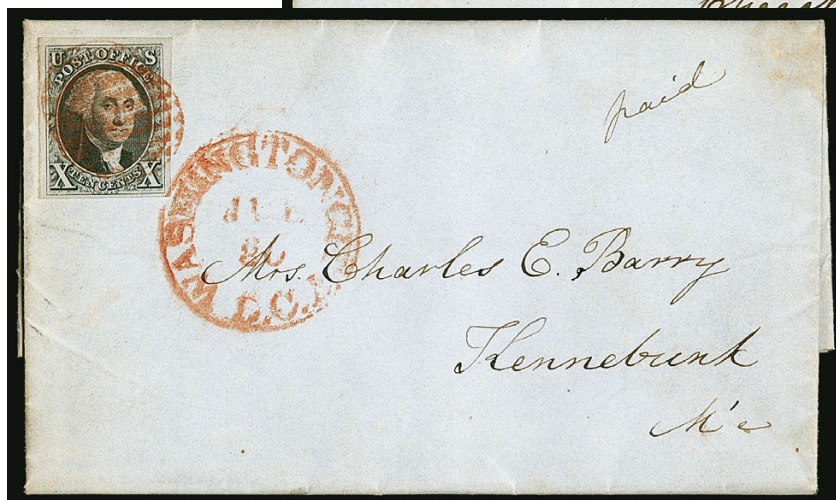 paid
U S
POST OFFICE
X TEN CENTS X
WASHINGTON CITY
JUL
D.C.
Mrs. Charles E. Barry
Kennebunk
M'e